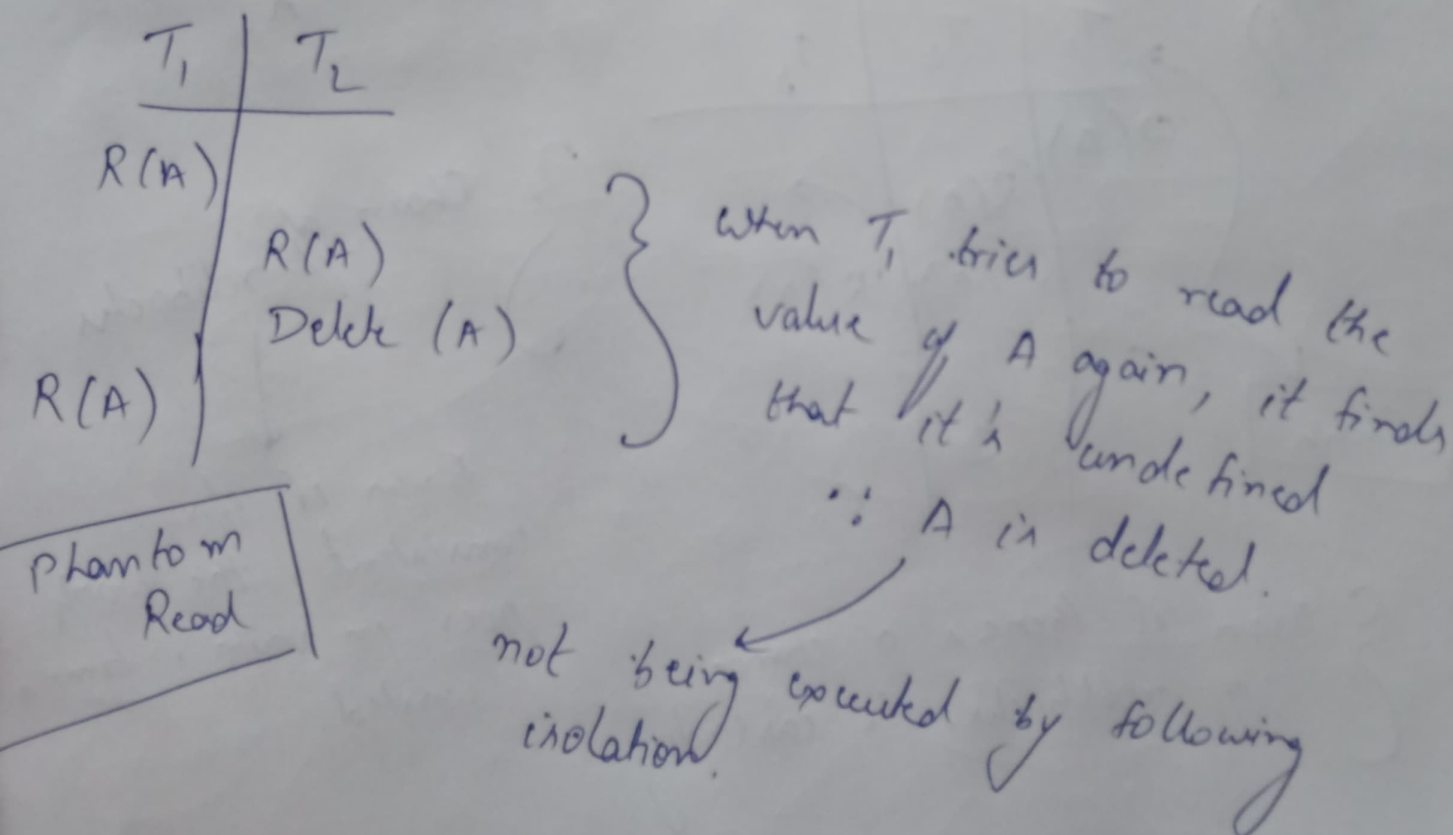 T1 T2
R(A)
R(A)
Delete (A)
R(A)
when T1 tries to read the
value of A again, it finds
that it's undefined
∵ A is deleted.
Phantom
Read
not being executed by following
isolation.